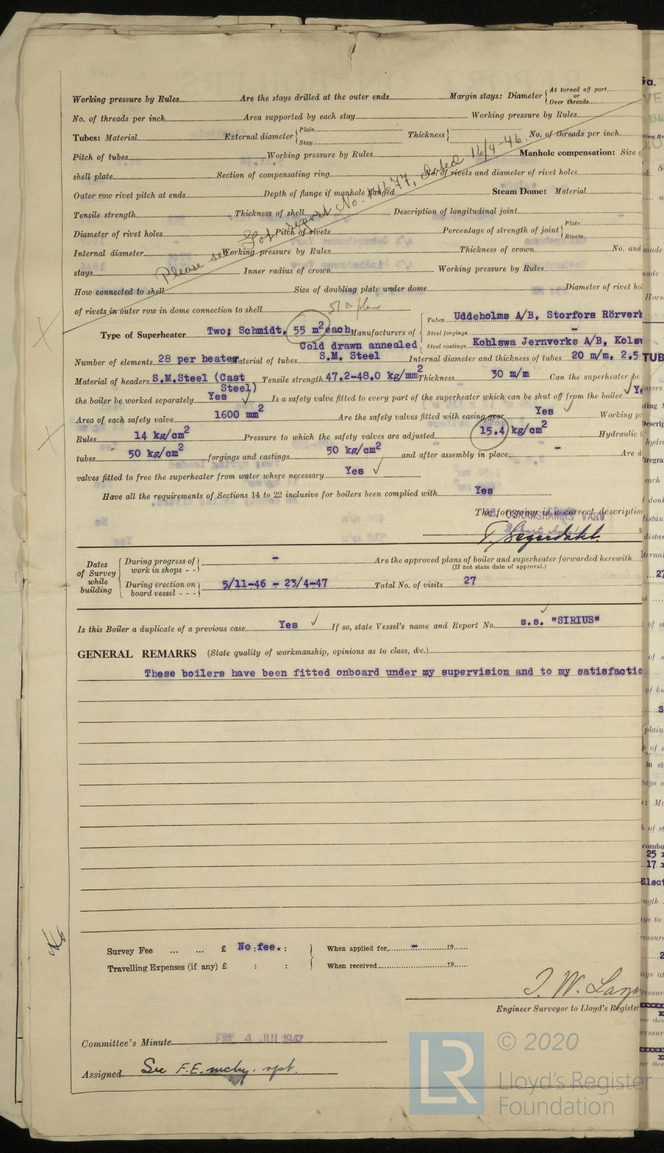 Working pressure by Rules Are the stays drilled at the outer ends Margin stays: Diameter { At turned off part or Over threads
No. of threads per inch Area supported by each stay Working pressure by Rules
Tubes: Material External diameter { Plain Stay Thickness { No. of threads per inch
Pitch of tubes Working pressure by Rules Manhole compensation: Size
shell plate Section of compensating ring No. of rivets and diameter of rivet holes
Outer row rivet pitch at ends Depth of flange if manhole flanged Steam Dome: Material
Tensile strength Thickness of shell Description of longitudinal joint
Diameter of rivet holes Pitch of rivets Percentage of strength of joint { Plate Rivets
Please see Got. report No. 14677, dated 16/4-46
Internal diameter Working pressure by Rules Thickness of crown No. and
stays Inner radius of crown Working pressure by Rules
How connected to shell Size of doubling plate under dome Diameter of rivet
of rivets in outer row in dome connection to shell
51 on plan
Type of Superheater Two; Schmidt, 55 m² each Manufacturers of { Tubes Uddeholms A/B, Storfors Rörverk
Steel forgings -
Steel castings Kohlswa Jernverks A/B,
Number of elements 28 per heater Material of tubes Cold drawn annealed S.M. Steel Internal diameter and thickness of tubes 20 m/m, 2.5
Material of headers S.M.Steel (Cast Steel) Tensile strength 47.2-48.0 kg/mm² Thickness 30 m/m Can the superheater
the boiler be worked separately Yes ✓ Is a safety valve fitted to every part of the superheater which can be shut off from the boiler ✓
Area of each safety valve 1600 mm² Are the safety valves fitted with easing gear Yes ✓ Working
Rules 14 kg/cm² Pressure to which the safety valves are adjusted 15.4 kg/cm² Hydraulic
tubes 50 kg/cm² forgings and castings 50 kg/cm² and after assembly in place - Are
valves fitted to free the superheater from water where necessary Yes ✓
Have all the requirements of Sections 14 to 22 inclusive for boilers been complied with Yes
The foregoing is a correct description
OSKARSHAMNS VARV
T. Segerdahl.
Dates of Survey while building { During progress of work in shops - - } - Are the approved plans of boiler and superheater forwarded herewith
(If not state date of approval.)
During erection on board vessel - - - } 5/11-46 - 23/4-47 Total No. of visits 27
Is this Boiler a duplicate of a previous case Yes ✓ If so, state Vessel's name and Report No. s.s. "SIRIUS" ✓
GENERAL REMARKS (State quality of workmanship, opinions as to class, &c.)
These boilers have been fitted onboard under my supervision and to my satisfactio
Survey Fee ... ... £ No : fee. : } When applied for - 19
Travelling Expenses (if any) £ : : } When received 19
Engineer Surveyor to Lloyd's Register
Committee's Minute FRI 4 JUL 1947
Assigned See F.E. mchy. rpt.
LR © 2020
Lloyd's Register
Foundation